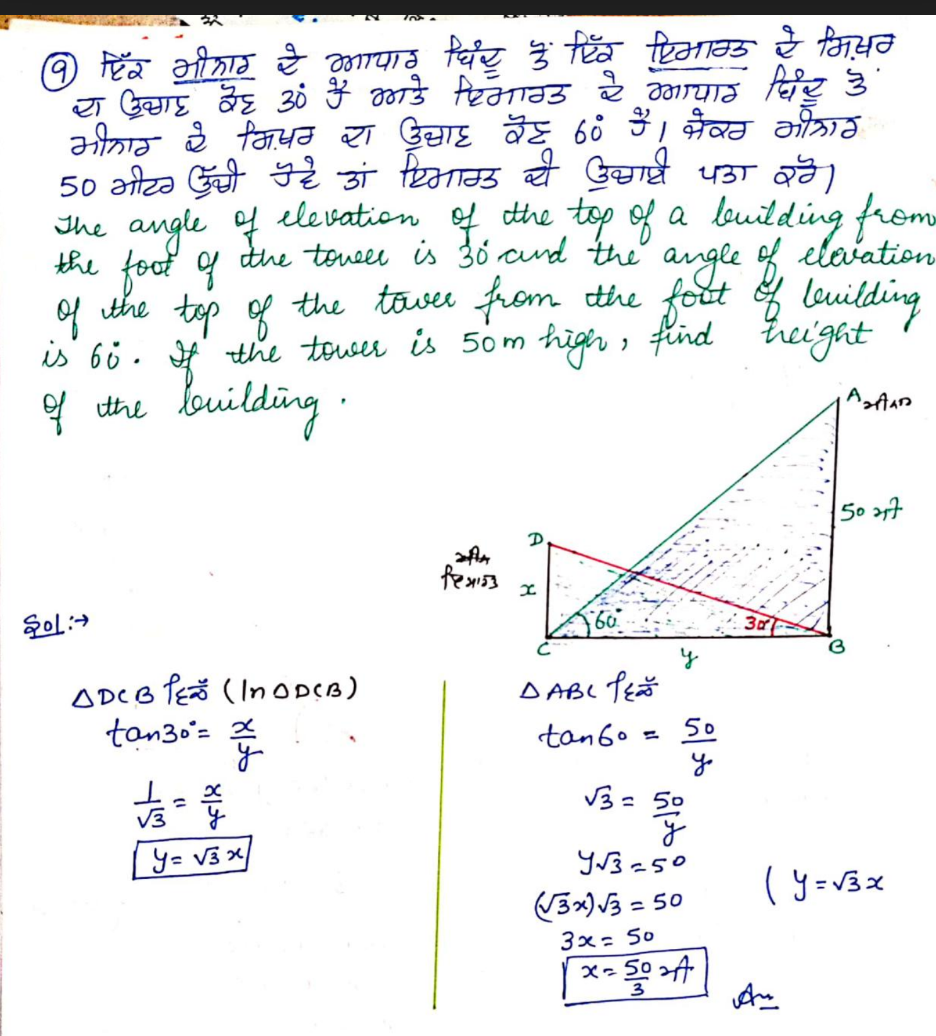 ⑨ ਇੱਕ ਮੀਨਾਰ ਦੇ ਆਧਾਰ ਬਿੰਦੂ ਤੋਂ ਇੱਕ ਇਮਾਰਤ ਦੇ ਸਿਖ਼ਰ
ਦਾ ਉਚਾਣ ਕੋਣ 30° ਹੈ ਅਤੇ ਇਮਾਰਤ ਦੇ ਆਧਾਰ ਬਿੰਦੂ ਤੋਂ
ਮੀਨਾਰ ਦੇ ਸਿਖ਼ਰ ਦਾ ਉਚਾਣ ਕੋਣ 60° ਹੈ। ਜੇਕਰ ਮੀਨਾਰ
50 ਮੀਟਰ ਉੱਚੀ ਹੋਵੇ ਤਾਂ ਇਮਾਰਤ ਦੀ ਉਚਾਈ ਪਤਾ ਕਰੋ।
The angle of elevation of the top of a building from
the foot of the tower is 30° and the angle of elevation
of the top of the tower from the foot of building
is 60°. If the tower is 50m high, find height
of the building.
A ਮੀਨਾਰ
50 ਮੀ
D
ਇਮਾਰਤ
x
60°
30°
C
y
B
Sol:→
△DCB ਵਿੱਚ (In △DCB)
tan30° = x/y
1/√3 = x/y
y = √3 x
△ABC ਵਿੱਚ
tan60 = 50/y
√3 = 50/y
y√3 = 50
(√3x)√3 = 50
( y = √3x
3x = 50
x = 50/3 ਮੀ
Ans